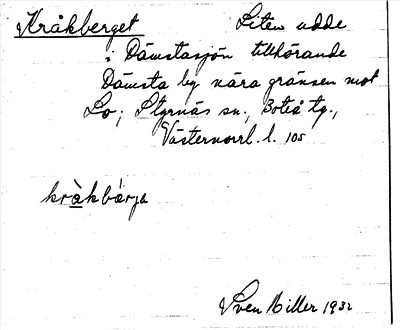 Kråkberget Liten udde
i Dämstasjön tillhörande
Dämsta by nära gränsen mot
Lo; Styrnäs sn., Boteå tg.,
Västernorrl. l. 105
kràkbárja
Sven Miller 1932